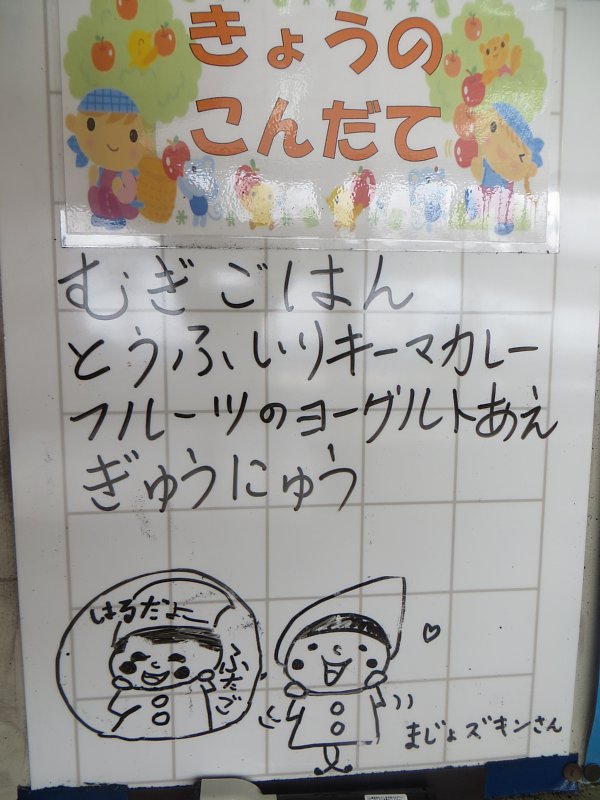 きょうの
こんだて
むぎごはん
とうふいりキーマカレー
フルーツのヨーグルトあえ
ぎゅうにゅう
はるだよー
ふたご
まじょズキンさん